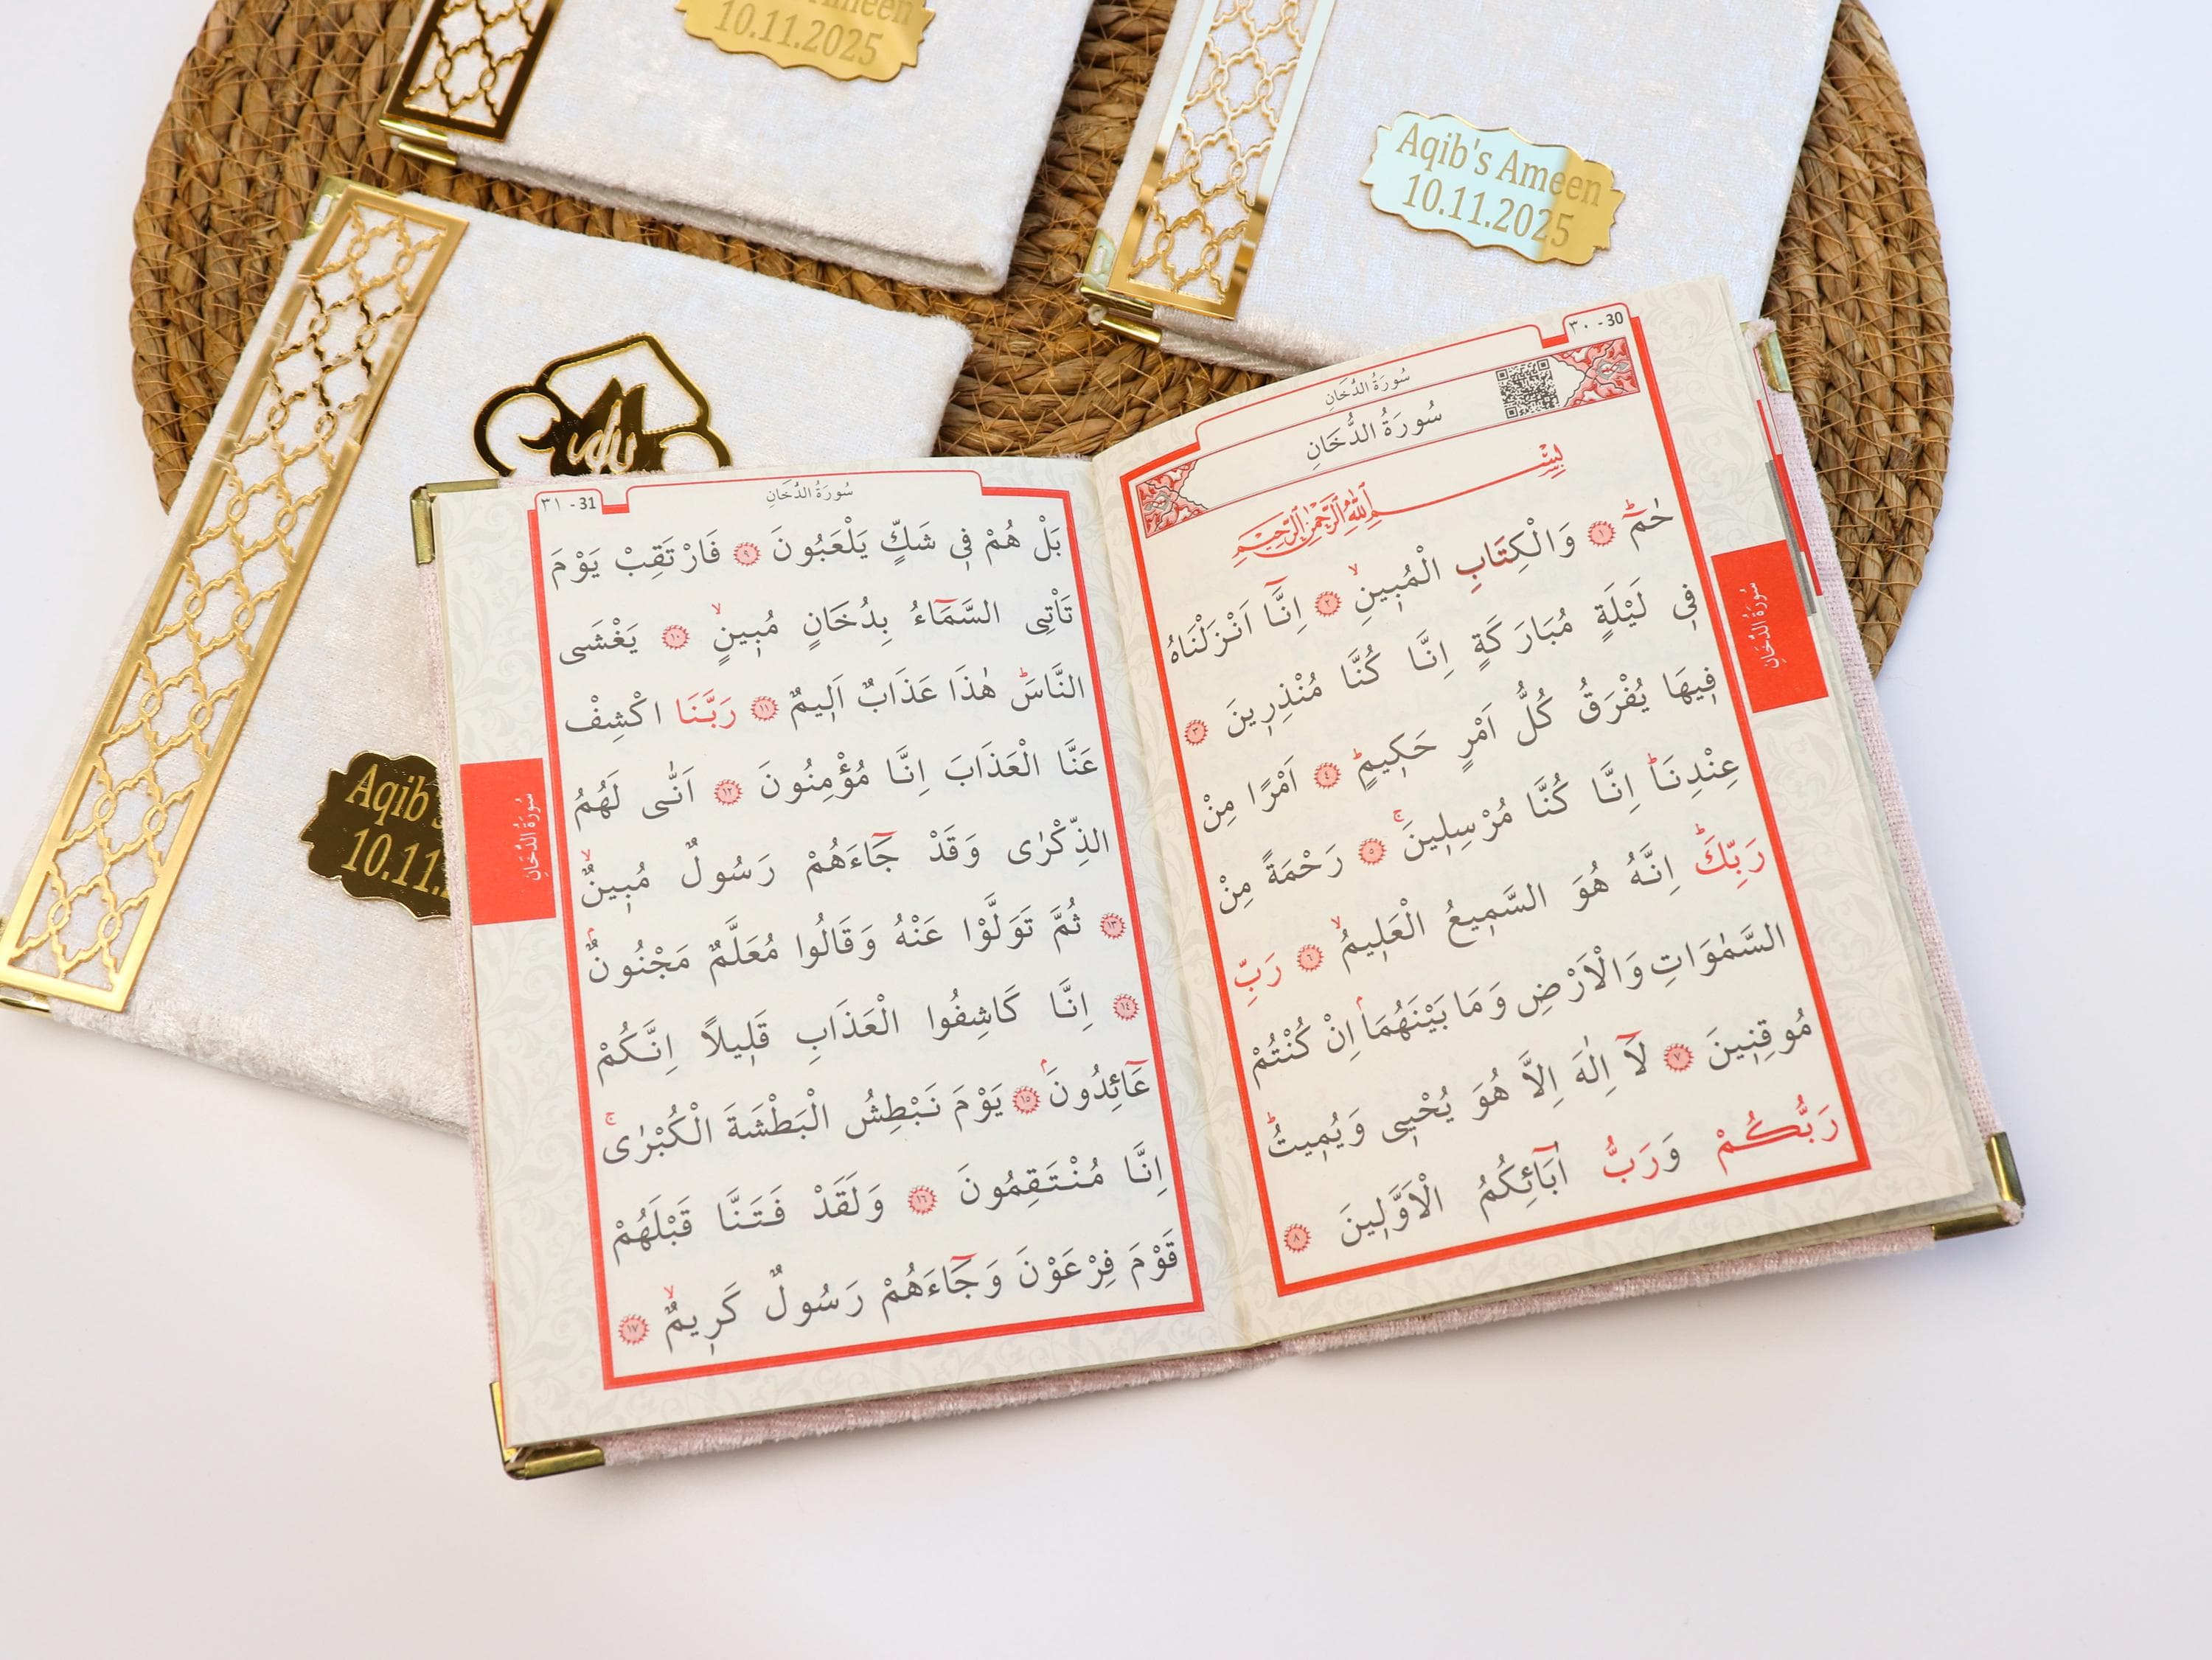 Ameen
10.11.2025
Aqib's Ameen
10.11.2025
Aqib's
10.11.
٣٠ - 30
سُورَةُ الدُّخَانِ
سُورَةُ الدُّخَانِ
بِسْمِ اللّٰهِ الرَّحْمٰنِ الرَّحِيمِ
حٰمٓ ۚ ﴿١﴾ وَالْكِتَابِ الْمُبِينِ ۙ ﴿٢﴾ اِنَّٓا اَنْزَلْنَاهُ
فِي لَيْلَةٍ مُبَارَكَةٍ اِنَّا كُنَّا مُنْذِرِينَ ﴿٣﴾
فِيهَا يُفْرَقُ كُلُّ اَمْرٍ حَكِيمٍ ۚ ﴿٤﴾ اَمْرًا مِنْ
عِنْدِنَا ۜ اِنَّا كُنَّا مُرْسِلِينَ ۚ ﴿٥﴾ رَحْمَةً مِنْ
رَبِّكَ ۜ اِنَّهُ هُوَ السَّمِيعُ الْعَلِيمُ ۙ ﴿٦﴾ رَبِّ
السَّمٰوَاتِ وَالْاَرْضِ وَمَا بَيْنَهُمَا ۢ اِنْ كُنْتُمْ
مُوقِنِينَ ﴿٧﴾ لَٓا اِلٰهَ اِلَّا هُوَ يُحْيِي وَيُمِيتُ ۜ
رَبُّكُمْ وَرَبُّ اٰبَٓائِكُمُ الْاَوَّلِينَ ﴿٨﴾
سُورَةُ الدُّخَانِ
٣١ - 31
سُورَةُ الدُّخَانِ
بَلْ هُمْ فِي شَكٍّ يَلْعَبُونَ ﴿٩﴾ فَارْتَقِبْ يَوْمَ
تَأْتِي السَّمَٓاءُ بِدُخَانٍ مُبِينٍ ۙ ﴿١٠﴾ يَغْشَى
النَّاسَ ۜ هٰذَا عَذَابٌ اَلِيمٌ ﴿١١﴾ رَبَّنَا اكْشِفْ
عَنَّا الْعَذَابَ اِنَّا مُؤْمِنُونَ ﴿١٢﴾ اَنّٰى لَهُمُ
الذِّكْرٰى وَقَدْ جَٓاءَهُمْ رَسُولٌ مُبِينٌ ۙ
﴿١٣﴾ ثُمَّ تَوَلَّوْا عَنْهُ وَقَالُوا مُعَلَّمٌ مَجْنُونٌ ۢ
﴿١٤﴾ اِنَّا كَاشِفُوا الْعَذَابِ قَلِيلًا اِنَّكُمْ
عَٓائِدُونَ ۢ ﴿١٥﴾ يَوْمَ نَبْطِشُ الْبَطْشَةَ الْكُبْرٰى ۚ
اِنَّا مُنْتَقِمُونَ ﴿١٦﴾ وَلَقَدْ فَتَنَّا قَبْلَهُمْ
قَوْمَ فِرْعَوْنَ وَجَٓاءَهُمْ رَسُولٌ كَرِيمٌ ۙ ﴿١٧﴾
سُورَةُ الدُّخَانِ